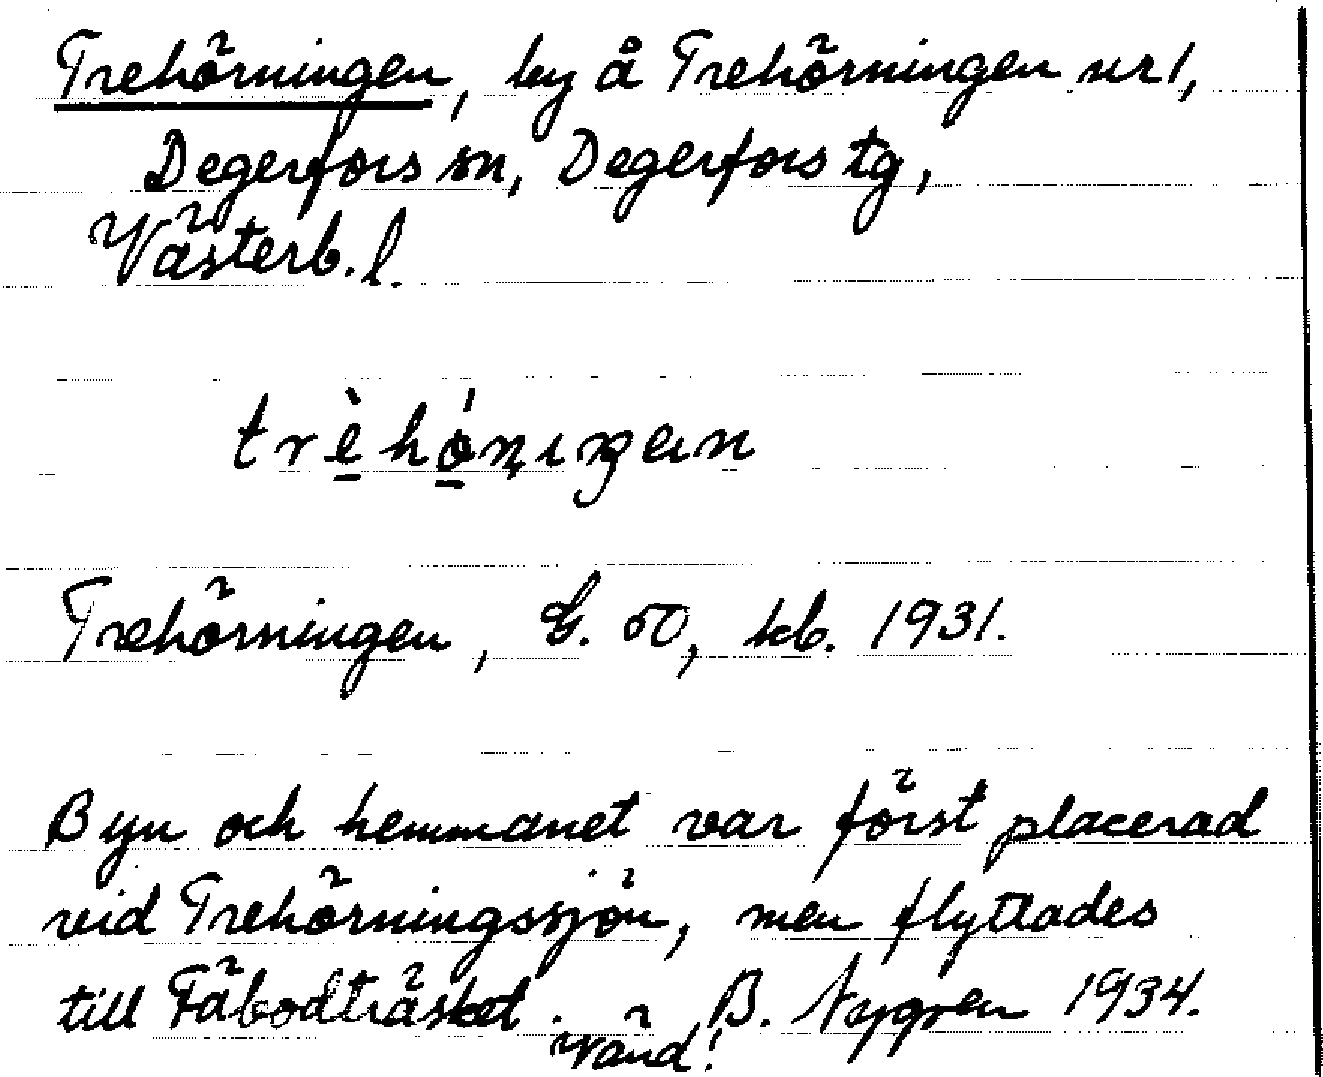 Trehörningen, by å Trehörningen nr 1,
Degerfors sn, Degerfors tg,
Västerb. l.
trèhó̤ṇıŋɐn
Trehörningen, G. 50, kb. 1931.
Byn och hemmanet var först placerad
vid Trehörningssjön, men flyttades
till Fäbodträsket. B. Nygren 1934.
Vänd!